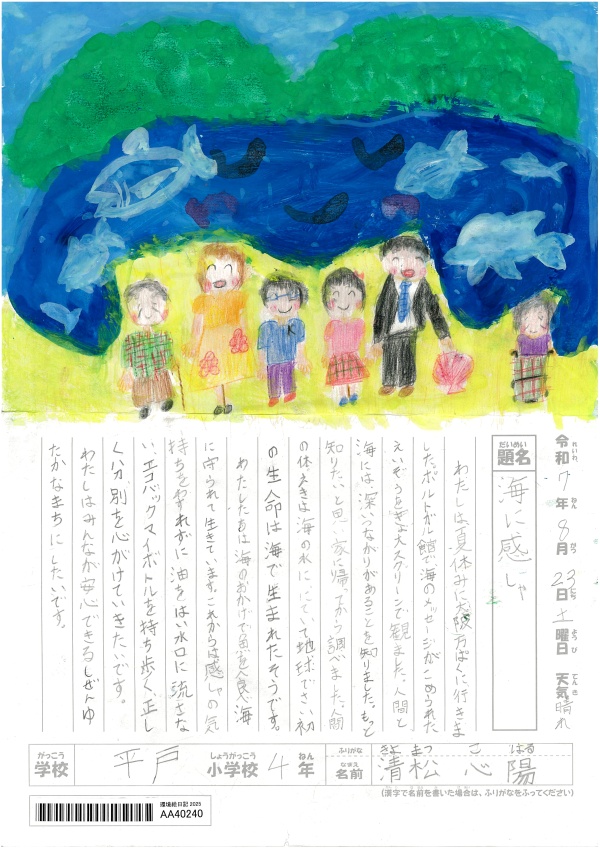 令和7年8月23日土曜日 天気晴れ
れいわ ねん がつ にち ようび てんき
だいめい
題名
海に感しゃ
わたしは、夏休みに大阪万ぱくに行きま
した。ポルトガル館で海のメッセージがこめられた
えいぞうをきょ大スクリーンで観ました。人間と
海には、深いつながりがあることを知りました。もっと
知りたいと思い家に帰ってから調べました。人間
の体えきは海の水ににていて地球でさい初
の生命は海で生まれたそうです。
わたしたちは海のおかげで魚を食べ海
に守られて生きています。これからは感しゃの気
持ちをわすれずに油をはい水口に流さな
い、エコバックマイボトルを持ち歩く、正し
く分別を心がけていきたいです。
わたしはみんなが安心できるしぜんゆ
たかなまちにしたいです。
がっこう しょうがっこう ねん ふりがな きよ まつ こ はる
学校 平戸 小学校 4年 なまえ 名前 清松 心陽
(漢字で名前を書いた場合は、ふりがなをふってください)
環境絵日記 2025
AA40240